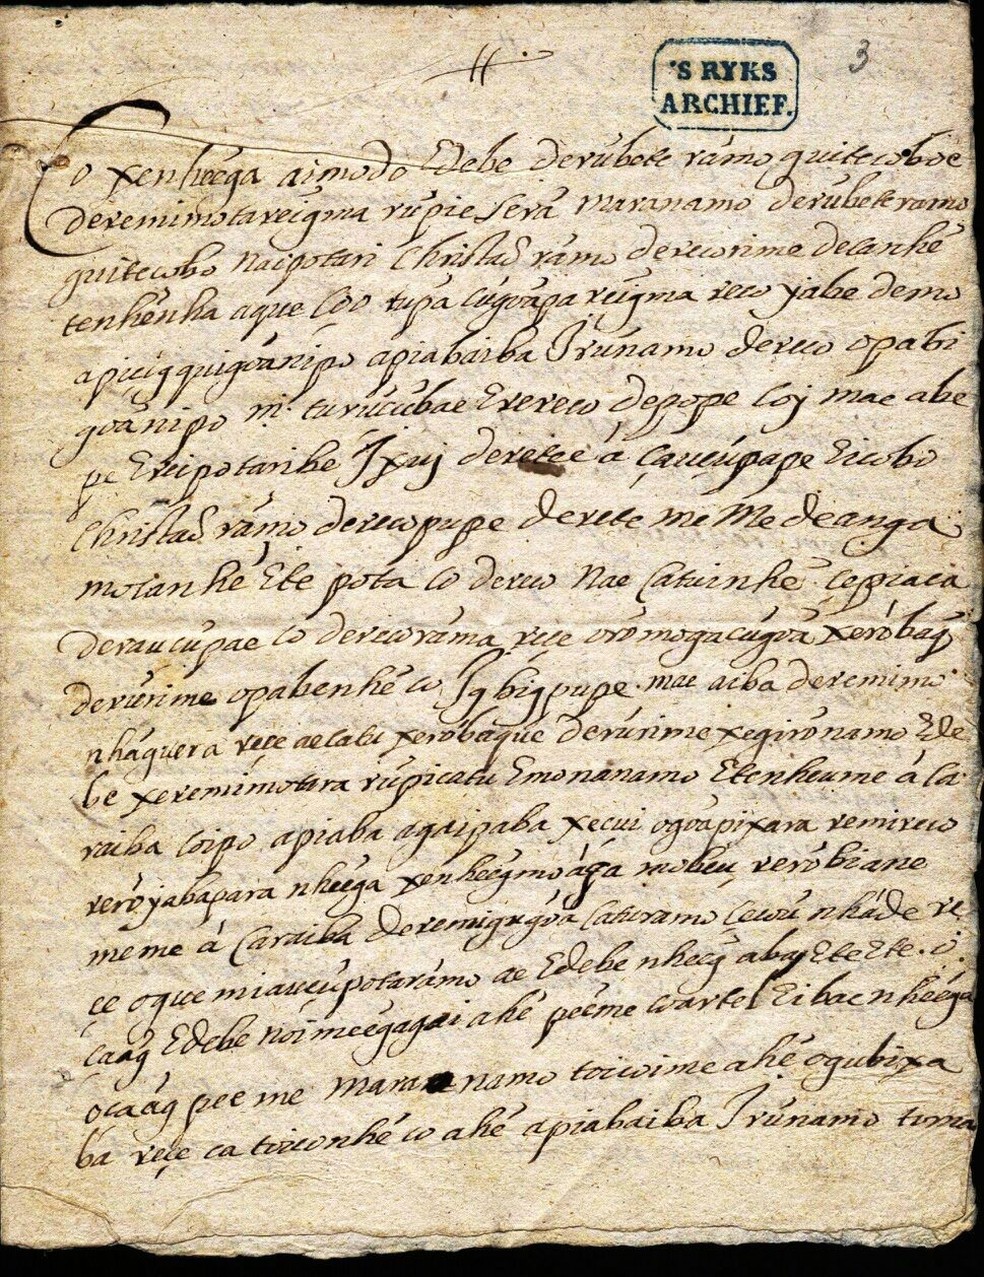 'S RYKS
ARCHIEF.
3
Co xenheẽga aimodo Edebe derubete ramo quitecoboe
deremimotareigma rupie sera maranamo derubeteramo
quitecobo naipotari Christaõ ramo derecorime decanhẽ
tenhẽnha aque coo tupã cugoapareigma reco yabe demo
apiciq quigoãnipo apiabaiba Irũnamo dereco opabi
goãnipo mr. turucubae Erereco depope coỹ mae abe
pe Ereipotaribé Ixuj deretee á çauçupape Eicobo
Christaõ ramo derecopupe derete me Me deanga
motanhẽ Ete pota co dereco Nae catuinhẽ cepiaca
derauçupae co derecorama reçe oromogacugoa xerobaq
derurime opabenhẽ co Iqbiqpupe. mae aiba deremimo
nhãguera reçe aecatu xerobaque derurime xegironamo Ede
be xeremimotara rupicatu Emonanamo Etenheume á ca
raiba coipo apiaba agaipaba xeçui ogoapixara remireco
reroyabapara nheẽga xenheẽgmoãga mobeu, rerobiane
meme á Caraiba deremigugoa caturamo cecou nhãde re
çe oquemiauçupotaramo ae Edebe nheẽg aba EteEte. o
caaq Edebe noimeẽgagai ahẽ peẽme coarte Eibac nheẽga
ocaaq peeme mara namo toicoime ahẽ ogubixa
ba reçe ca toiconhẽ co ahẽ apiabaiba Irũnamo toma